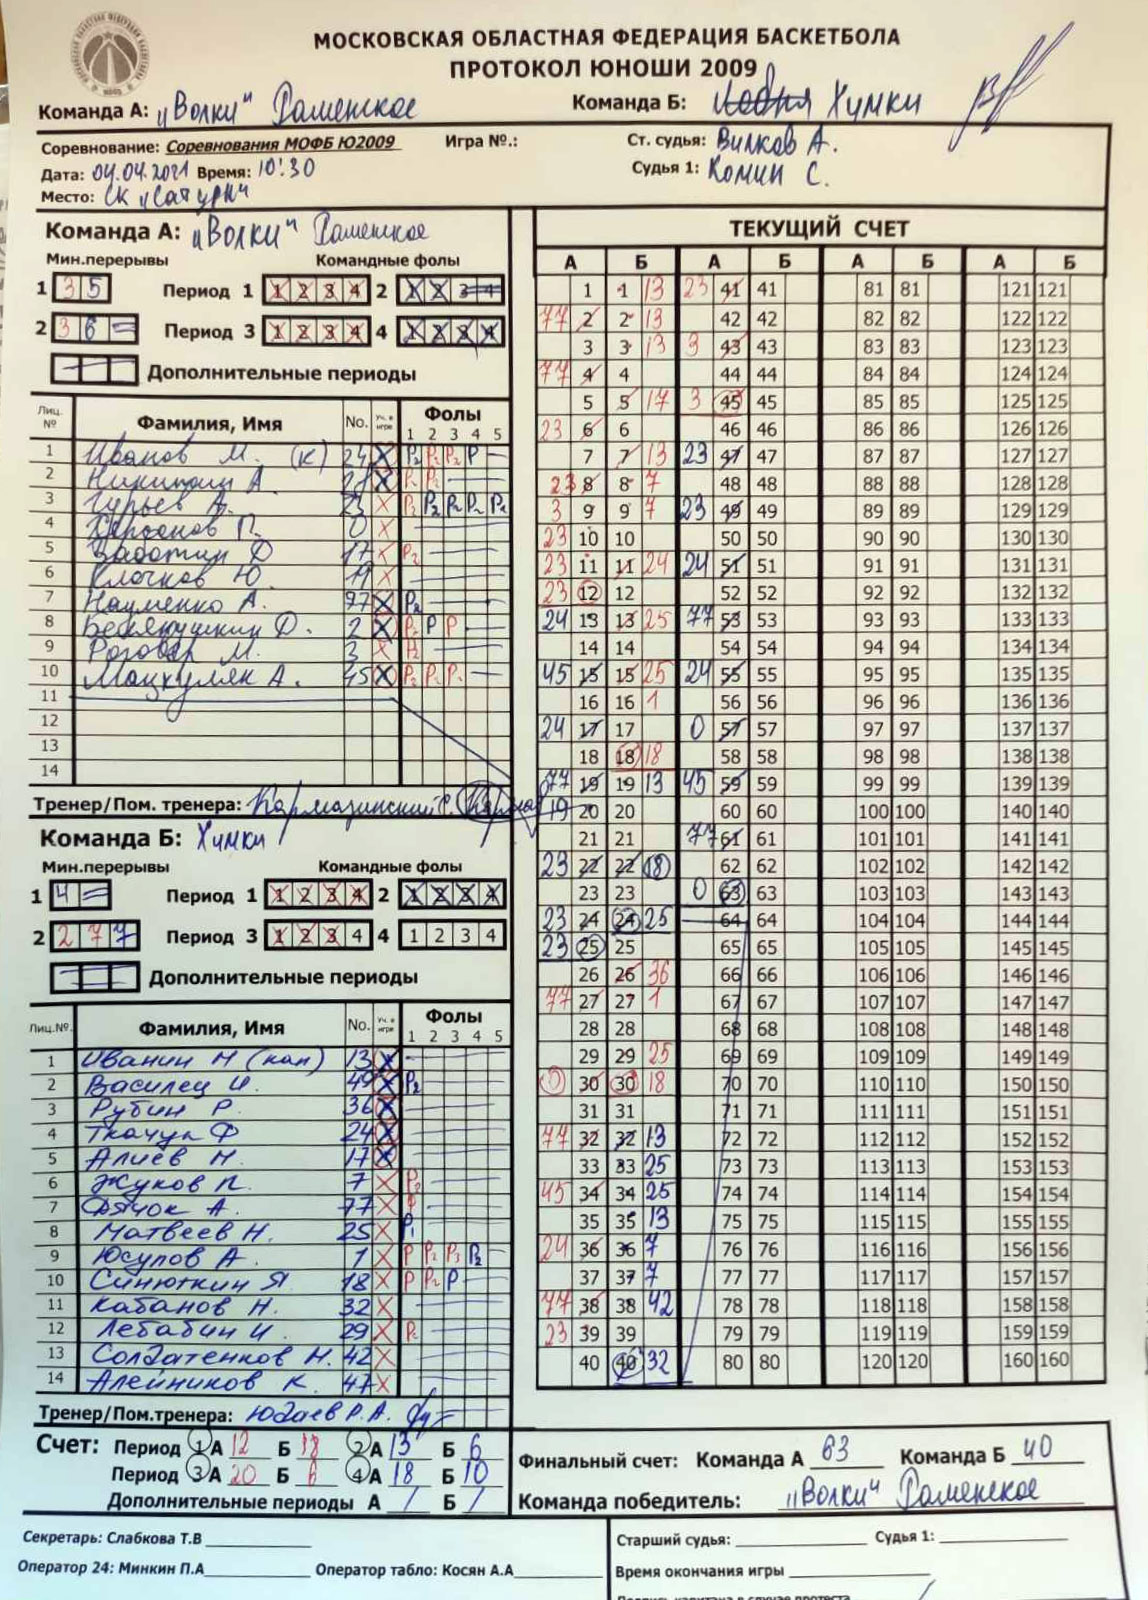 МОСКОВСКАЯ ОБЛАСТНАЯ ФЕДЕРАЦИЯ БАСКЕТБОЛА
ПРОТОКОЛ ЮНОШИ 2009
Команда А: "Волки" Раменское Команда Б: Химки
Соревнование: Соревнования МОФБ Ю2009 Игра №.: Ст. судья: Вилков А.
Дата: 04.04.2021 Время: 10:30 Судья 1: Комин С.
Место: СК "Сатурн"
Команда А: "Волки" Раменское
Мин.перерывы Командные фолы
1 3 5 Период 1 1 2 3 4 2 1 2 3 4
2 3 6 Период 3 1 2 3 4 4 1 2 3 4
Дополнительные периоды
Лиц. № Фамилия, Имя No. Уч. в игре Фолы 1 2 3 4 5
1 Иванов М. (к) 24 X P2 P2 P2 P
2 Никитин А. 28 X
3 Гурьев А. 23 X P2 P2 P2 P2 P2
4 П. 0 X
5 Заботин Д 17 X P2
6 Клочков Ю. 19 X
7 Науменко А. 77 X P2
8 Д. 2 X P P
9 М. 3 X
10 А. 45 X P2 P2 P2
11
12
13
14
Тренер/Пом. тренера: Кармазинский С.
Команда Б: Химки
Мин.перерывы Командные фолы
1 4 Период 1 1 2 3 4 2 1 2 3 4
2 2 7 7 Период 3 1 2 3 4 4 1 2 3 4
Дополнительные периоды
Лиц.№. Фамилия, Имя No. Уч. в игре Фолы 1 2 3 4 5
1 Иванин Н (кап) 13 X
2 Василец И. 49 X P2
3 Рубин Р. 36 X
4 Ткачук Ф 24 X
5 Алиев Н. 17 X
6 Жуков П. 7 X P2
7 Дячок А. 77 X P
8 Матвеев Н. 25 X P1
9 Юсупов А 1 X P P2 P3 P2
10 Синюткин Я 18 X P P2 P
11 Кабанов Н. 32 X
12 Лебабин И. 29 X P2
13 Солдатенков Н. 42 X
14 Алейников К. 47 X
Тренер/Пом.тренера: Юдаев Р.А.
ТЕКУЩИЙ СЧЕТ
А Б А Б А Б А Б
1 1 13 23 41 41 81 81 121 121
77 2 2 13 42 42 82 82 122 122
3 3 13 3 43 43 83 83 123 123
77 4 4 44 44 84 84 124 124
5 5 17 3 45 45 85 85 125 125
23 6 6 46 46 86 86 126 126
7 7 13 23 47 47 87 87 127 127
23 8 8 7 48 48 88 88 128 128
3 9 9 7 23 49 49 89 89 129 129
23 10 10 50 50 90 90 130 130
23 11 11 24 24 51 51 91 91 131 131
23 12 12 52 52 92 92 132 132
24 13 13 25 77 53 53 93 93 133 133
14 14 54 54 94 94 134 134
45 15 15 25 24 55 55 95 95 135 135
16 16 1 56 56 96 96 136 136
24 17 17 0 57 57 97 97 137 137
18 18 18 58 58 98 98 138 138
77 19 19 13 45 59 59 99 99 139 139
19 20 20 60 60 100 100 140 140
21 21 77 61 61 101 101 141 141
23 22 22 18 62 62 102 102 142 142
23 23 0 63 63 103 103 143 143
23 24 24 25 64 64 104 104 144 144
23 25 25 65 65 105 105 145 145
26 26 36 66 66 106 106 146 146
77 27 27 1 67 67 107 107 147 147
28 28 68 68 108 108 148 148
29 29 25 69 69 109 109 149 149
0 30 30 18 70 70 110 110 150 150
31 31 71 71 111 111 151 151
77 32 32 13 72 72 112 112 152 152
33 33 25 73 73 113 113 153 153
45 34 34 25 74 74 114 114 154 154
35 35 13 75 75 115 115 155 155
24 36 36 7 76 76 116 116 156 156
37 37 7 77 77 117 117 157 157
77 38 38 42 78 78 118 118 158 158
23 39 39 79 79 119 119 159 159
40 40 32 80 80 120 120 160 160
Счет: Период 1 А 12 Б 18 2 А 13 Б 6
Период 3 А 20 Б 6 4 А 18 Б 10
Дополнительные периоды А / Б /
Финальный счет: Команда А 63 Команда Б 40
Команда победитель: "Волки" Раменское
Секретарь: Слабкова Т.В
Оператор 24: Минкин П.А Оператор табло: Косян А.А
Старший судья: Судья 1:
Время окончания игры
Подпись капитана в случае протеста